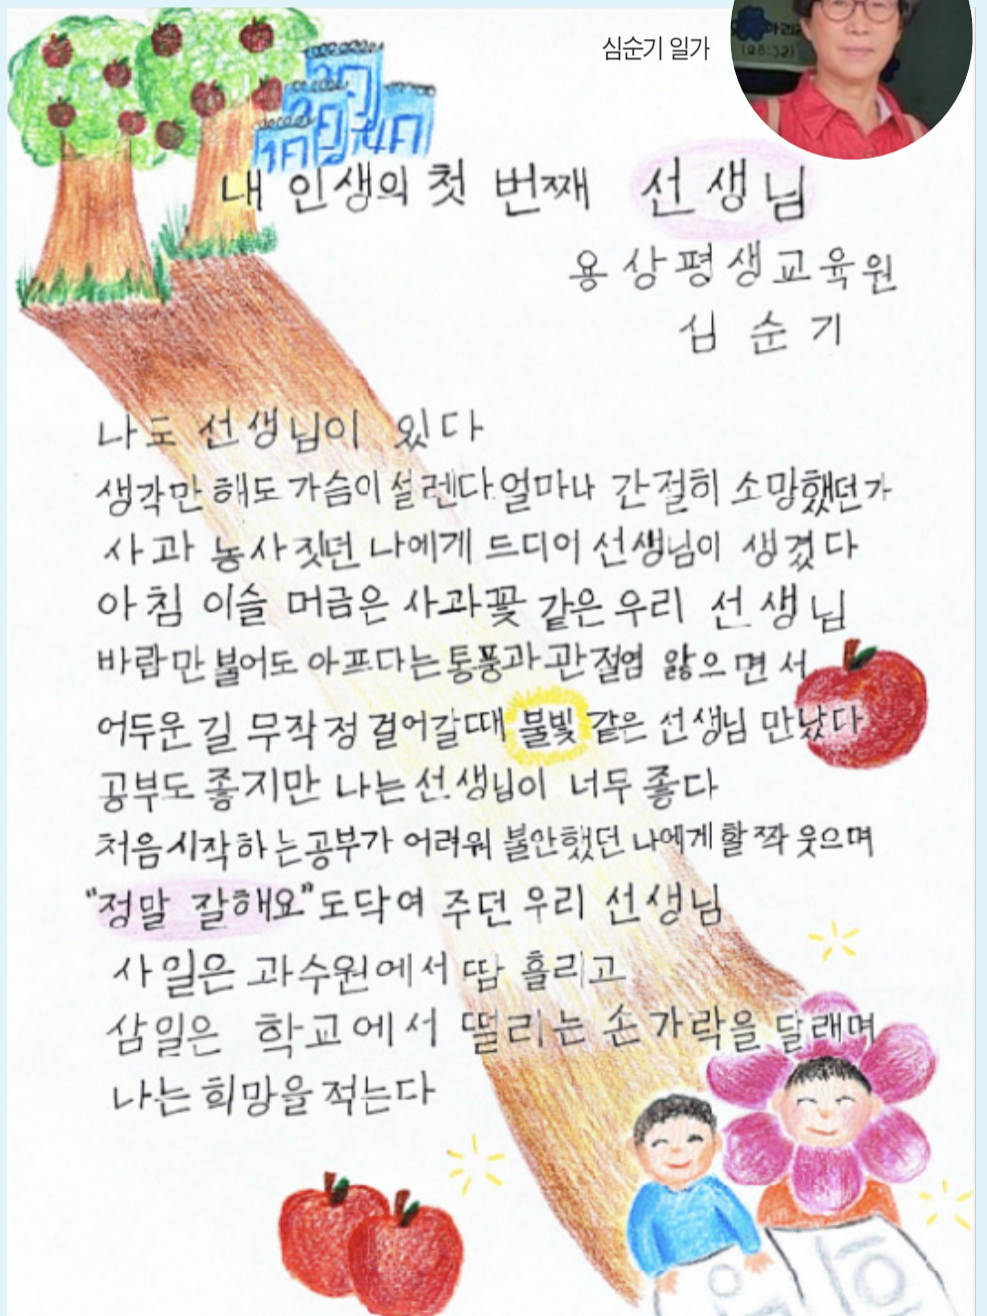 심순기 일가
(28:32)
1권 2권 3권 4권
내 인생의 첫 번째 선생님
용상평생교육원
심순기
나도 선생님이 있다
생각만 해도 가슴이 설레다 얼마나 간절히 소망했던가
사과 농사 짓던 나에게 드디어 선생님이 생겼다
아침 이슬 머금은 사과꽃 같은 우리 선생님
바람만 불어도 아프다는 통풍과 관절염 앓으면서
어두운 길 무작정 걸어갈때 불빛 같은 선생님 만났다
공부도 좋지만 나는 선생님이 너두 좋다
처음 시작하는 공부가 어려워 불안했던 나에게 활짝 웃으며
"정말 잘해요" 도닥여 주던 우리 선생님
사일은 과수원에서 땀 흘리고
삼일은 학교에서 떨리는 손가락을 달래며
나는 희망을 적는다